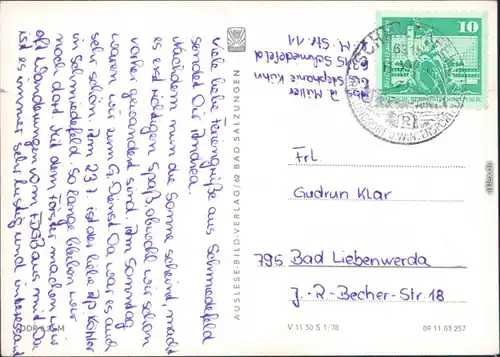 Viele liebe Feriengrüße aus Schmiedefeld
sendet Dir Andrea.
Nachdem nun die Sonne scheint macht
es erst richtigen Spaß obwohl wir schon
vorher gewandert sind. Am Sonntag
waren wir zum G. Dienst. Da war es auch
sehr schön. Am 23.7. ist der liebe
in Schmiedefeld so lange bleiben wir
noch dort. Mit dem Förster machen wir
oft Wandrungen vom FDGB aus mit. Da
ist es immer sehr lustig und interessant
DDR M
AUSLESE-BILD-VERLAG/62 BAD SALZUNGEN
Müller
Stephanie Kühn
Schmiedefeld
Str. 11
10
Frl
Gudrun Klar
795 Bad Liebenwerda
J.-R-Becher-Str. 18
V 11 50 S 1/78
09 11 03 257